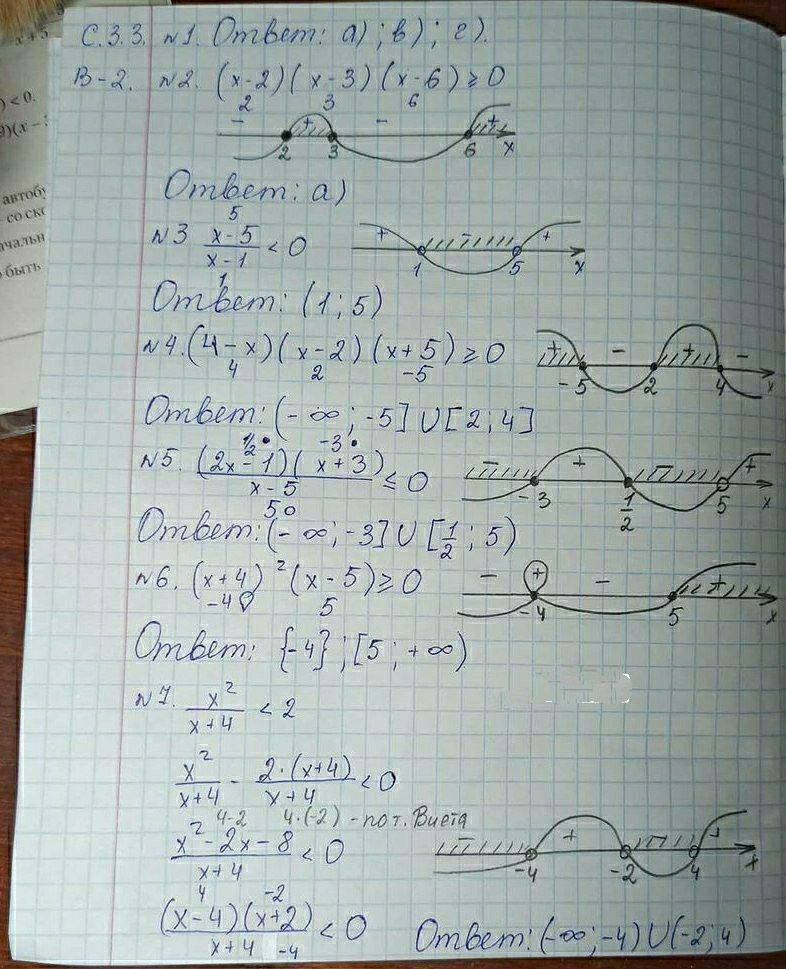 С.3.3. №1. Ответ: а); в); г).
В-2. №2. (x-2)(x-3)(x-6) ≥ 0
2 3 6
- + - +
2 3 6 x
Ответ: а)
5
№3 (x-5)/(x-1) < 0
1
+ - +
1 5 x
Ответ: (1; 5)
№4. (4-x)(x-2)(x+5) ≥ 0
4 2 -5
+ - + -
-5 2 4 x
Ответ: (-∞; -5] ∪ [2; 4]
1/2 • -3 •
№5. (2x-1)(x+3)/(x-5) ≤ 0
5 ○
- + - +
-3 1/2 5 x
Ответ: (-∞; -3] ∪ [1/2; 5)
№6. (x+4)²(x-5) ≥ 0
-4 5
- + - +
-4 5 x
Ответ: {-4}; [5; +∞)
№7. x²/(x+4) < 2
x²/(x+4) - 2·(x+4)/(x+4) < 0
4-2 4·(-2) - по т. Виета
(x²-2x-8)/(x+4) < 0
- + - +
-4 -2 4 x
4 -2
(x-4)(x+2)/(x+4) < 0
-4
Ответ: (-∞; -4) ∪ (-2; 4)
) < 0.
)(x -
автобу
со ско
ачальн
быть